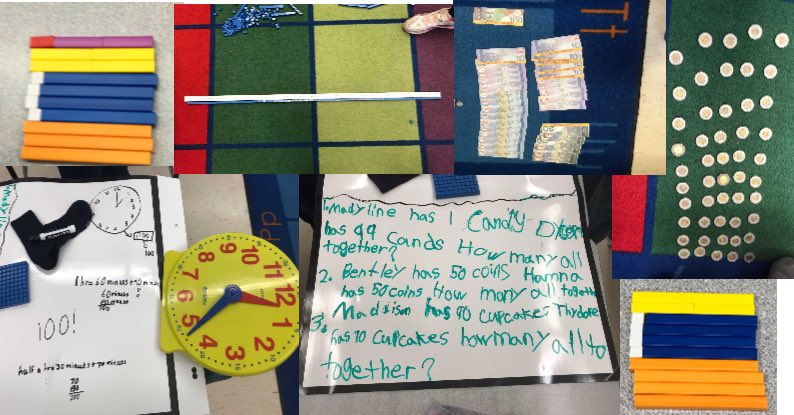 100
1:40
100
1 hr = 60 minuts + 40 minuts
60 minuts
100
100!
half a hr = 30 minuts + 70 minuts
70
+30
100
12
1
2
3
4
5
6
7
8
9
10
11
1. Madyline has 1 Candy
has 99 Cands How many all
together?
2. Bentley has 50 coins Hamna
has 50 coins How many all together
3. Maddison has 90 cupcakes
has 10 cupcakes how many all to
together?
Tt